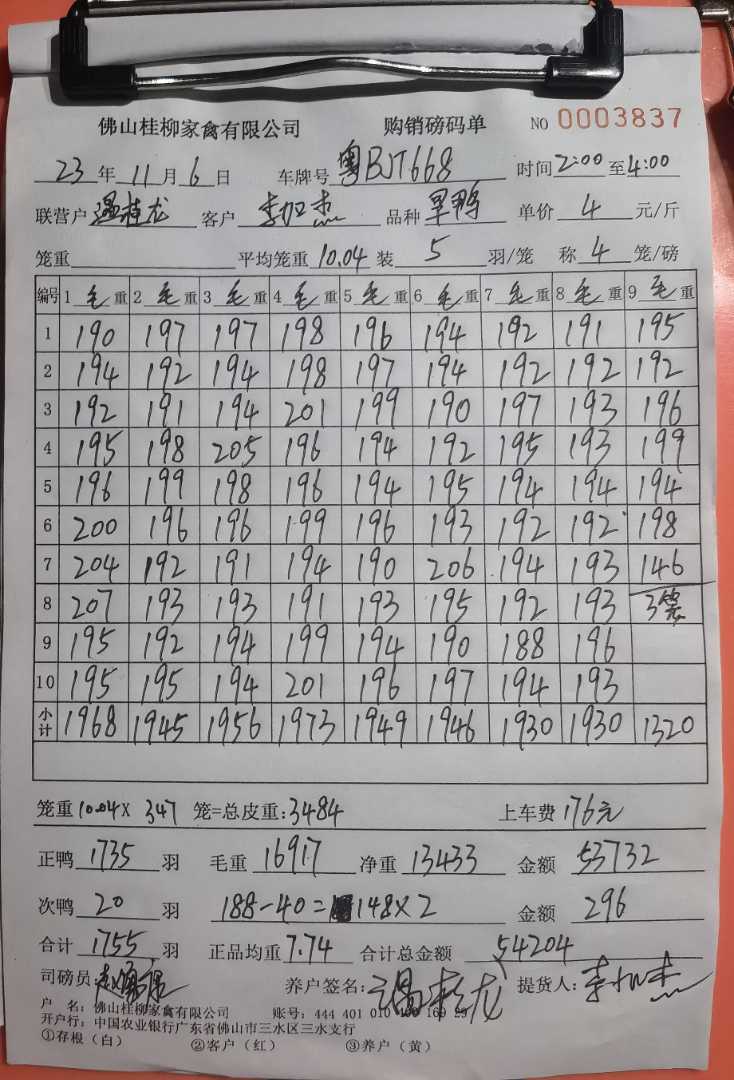 佛山桂柳家禽有限公司 购销磅码单 NO 0003837
23 年 11 月 6 日 车牌号 粤BJT668 时间 2:00 至 4:00
联营户 温桂龙 客户 品种 旱鸭 单价 4 元/斤
笼重 平均笼重 10.04 装 5 羽/笼 称 4 笼/磅
编号 1 毛 重 2 毛 重 3 毛 重 4 毛 重 5 毛 重 6 毛 重 7 毛 重 8 毛 重 9 毛 重
1 190 197 197 198 196 194 192 191 195
2 194 192 194 198 197 194 192 192 192
3 192 191 194 201 199 190 197 193 196
4 195 198 205 196 194 192 195 193 199
5 196 199 198 196 194 195 194 194 194
6 200 196 196 199 196 193 192 192 198
7 204 192 191 194 190 206 194 193 146
8 207 193 193 191 193 195 192 193 3笼
9 195 192 194 199 194 190 188 196
10 195 195 194 201 196 197 194 193
小计 1968 1945 1956 1973 1949 1946 1930 1930 1320
笼重 10.04 X 347 笼=总皮重: 3484 上车费 176元
正鸭 1735 羽 毛重 16917 净重 13433 金额 53732
次鸭 20 羽 188-40= 148X2 金额 296
合计 1755 羽 正品均重 7.74 合计总金额 54204
司磅员: 养户签名: 温桂龙 提货人:
户 名: 佛山桂柳家禽有限公司 账号: 444 401 010 400 169 29
开户行: 中国农业银行广东省佛山市三水区三水支行
①存根（白） ②客户（红） ③养户（黄）